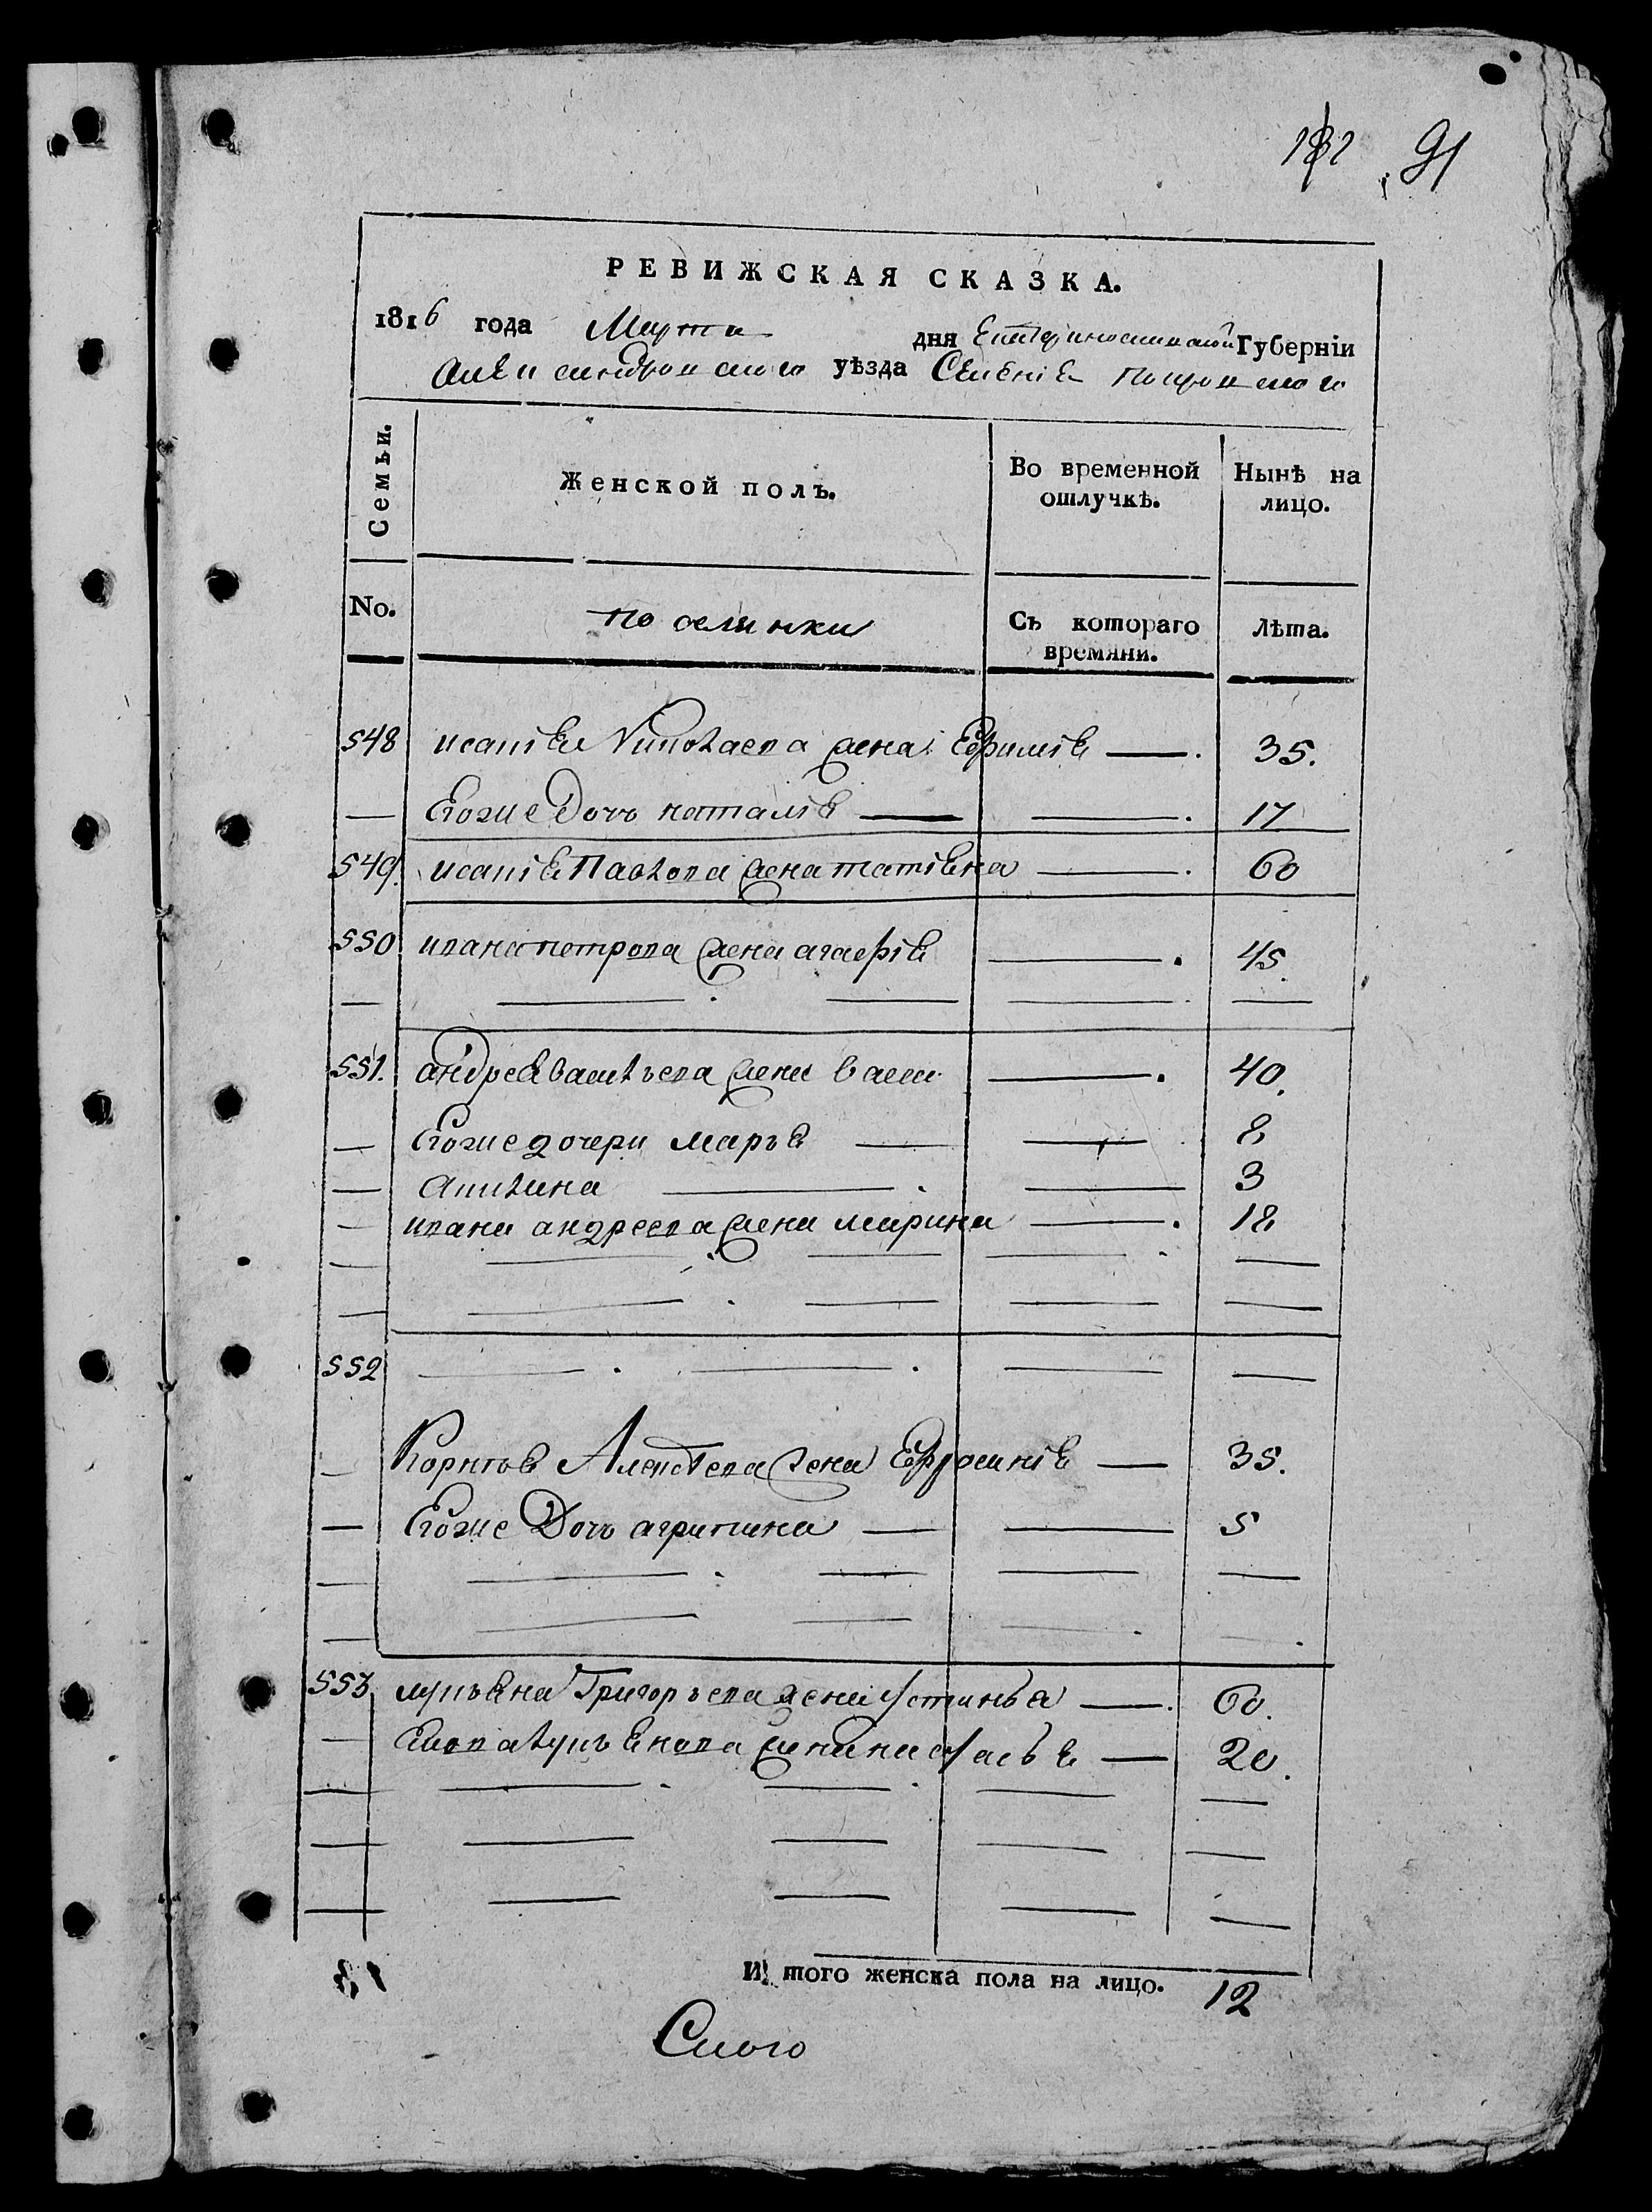 131 91
РЕВИЖСКАЯ СКАЗКА.
1816 года Марта дня Екатеринославской Губернїи
Александровского уѣзда Селенїя Покровского
Семьи.
Женской полъ.
Во временной отлучкѣ.
Нынѣ на лицо.
No.
поселянки
Съ котораго времяни.
Лѣта.
548 исаиїя Николаева жена Ефимїя 35.
— Егоже Дочь наталїя 17
549. исаиїя Павлова жена татїяна 60
550 ивана петрова жена агафїя 45.
551. андрея васильева жена васса 40.
— Егоже дочери марья 8
— Акилина 3
— ивана андреева жена марина 18
552
— Корнея Алексеева жена Ефросинїя 35.
— Егоже Дочь агрипина 5
553 лукьяна Григорьева жена Устинья 60.
— лукьянова жена 20.
И того женска пола на лицо. 12